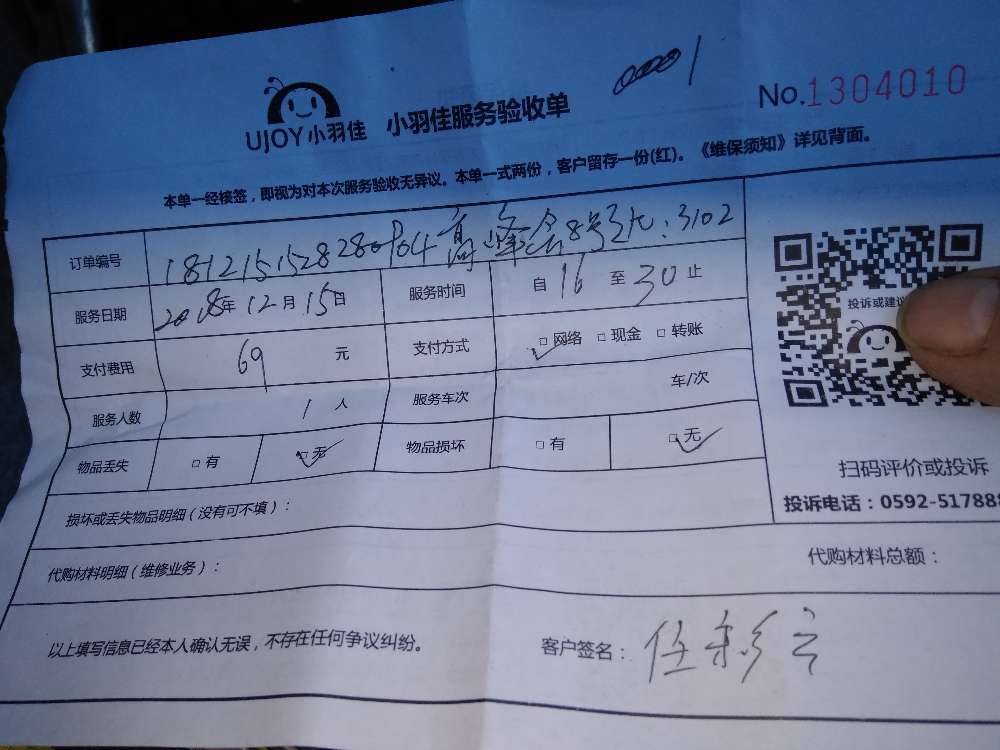 0001
No.1304010
UJOY小羽佳 小羽佳服务验收单
本单一经核签，即视为对本次服务验收无异议。本单一式两份，客户留存一份(红)。《维保须知》详见背面。
订单编号 8号 3102
服务日期 2018年12月15日 服务时间 自16至30止
支付费用 69 元 支付方式 □网络 □现金 □转账
服务人数 1 人 服务车次 车/次
物品丢失 □有 □无 物品损坏 □有 □无
损坏或丢失物品明细（没有可不填）：
代购材料明细（维修业务）： 代购材料总额：
以上填写信息已经本人确认无误，不存在任何争议纠纷。 客户签名：
投诉或建议
扫码评价或投诉
投诉电话：0592-517888